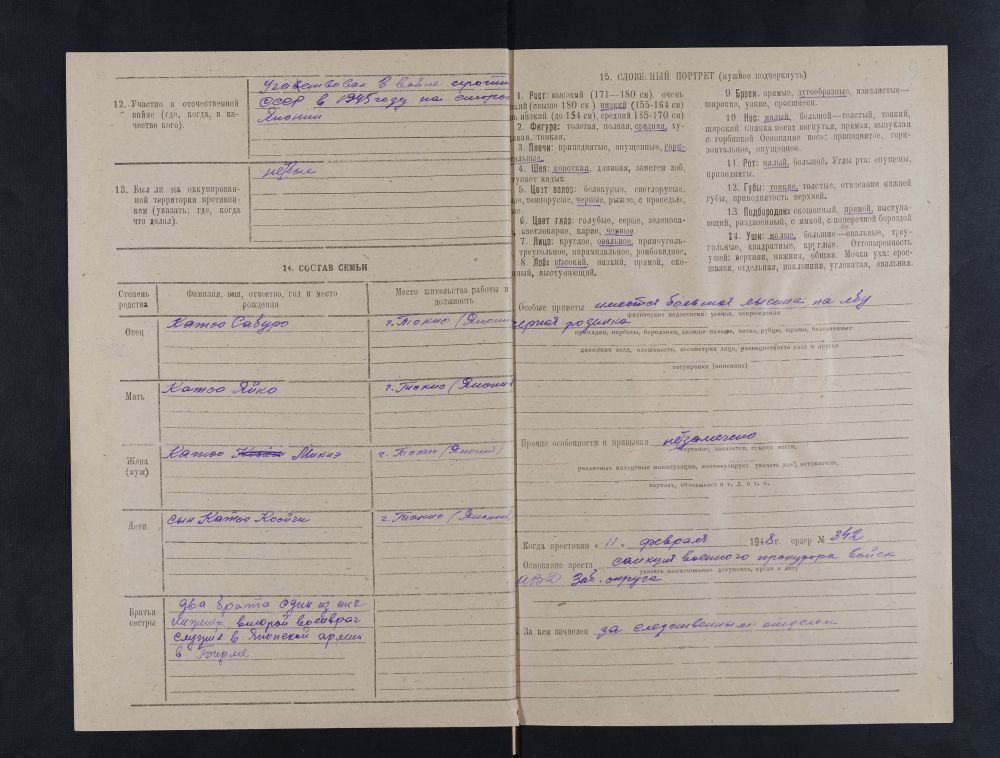 12. Участие в отечественной
войне (где, когда, в ка-
честве кого).
Участвовал в войне против
СССР в 1945 году на стороне
Японии
13. Был ли на оккупирован-
ной территории противни-
ком (указать: где, когда
что делал).
не был
14. СОСТАВ СЕМЬИ
Степень
родства
Фамилия, имя, отчество, год и место
рождения
Место жительства работы и
должность
Отец
Катоо Сабуро
г. Токио (Япони
Мать
Катоо Яйко
г. Токио (Япония
Жена
(муж)
Катоо Микиэ
г. Токио (Япония)
Дети
сын Катоо Коойчи
г. Токио (Япония
Братья
сестры
два брата один из них
инженер, второй военврач
служил в Японской армии
в Бирме
15. СЛОВЕСНЫЙ ПОРТРЕТ (нужное подчеркнуть)
1. Рост: высокий (171—180 см) очень
кий (свыше 180 см) низкий (155-164 см)
нь низкий (до 154 см), средний 165-170 см)
2. Фигура: толстая, полная, средняя, ху-
тонкая.
3. Плечи: приподнятые, опущенные, гори-
альные.
4. Шея: короткая, длинная, заметен зоб,
тупает кадык
5. Цвет волос: белокурые, светлорусые,
ые, темнорусые, черные, рыжие, с проседью,
ые.
6. Цвет глаз: голубые, серые, зеленова-
светлокарие, карие, черные.
7. Лицо: круглое, овальное, прямоуголь-
треугольное, пирамидальное, ромбовидное.
8. Лоб: высокий, низкий, прямой, ско-
нный, выступающий.
9 Брови: прямые, дугообразные, извилистые—
широкие, узкие, сросшиеся.
10 Нос: малый, большой—толстый, тонкий,
широкий Спинка носа: вогнутая, прямая, выпуклая
с горбинкой Основание носа: приподнятое, гори-
зонтальное, опущенное.
11. Рот: малый, большой. Углы рта: опущены,
приподняты.
12. Губы: тонкие, толстые, отвисание нижней
губы, приподнятость верхней.
13. Подбородок: скошенный, прямой, выступа-
ющий, раздвоенный, с ямкой, с поперечной бороздой
14. Уши: малые, большие—овальные, треу-
гольные, квадратные, круглые. Оттопыренность
ушей: верхняя, нижняя, общая. Мочка уха: срос-
шаяся, отдельная, наклонная, угловатая, овальная.
Особые приметы имеется большая лысина на лбу
физические недостатки: увечья, повреждения
черная родинка
припадки, горбаты, бородавки, лишние пальцы, пятна, рубцы, шрамы, болезненные
движения тела, плешивость, ассиметрия лица, разноцветность глаз и другие
татуировка (описание)
Прочие особенности и привычки незамечено
картавит, заикается, грызет ногти,
различные пальцевые манипуляции, жестикулирует указать как, автоматизм,
харкает, сплевывает и т. д. и т. п.
Когда арестован « 11 » февраля 1948 г. ордер № 342
Основание ареста санкция военного прокурора войск
указать наименование документа, орган и дату
МВД Заб. округа
За кем зачислен за следственным отделом